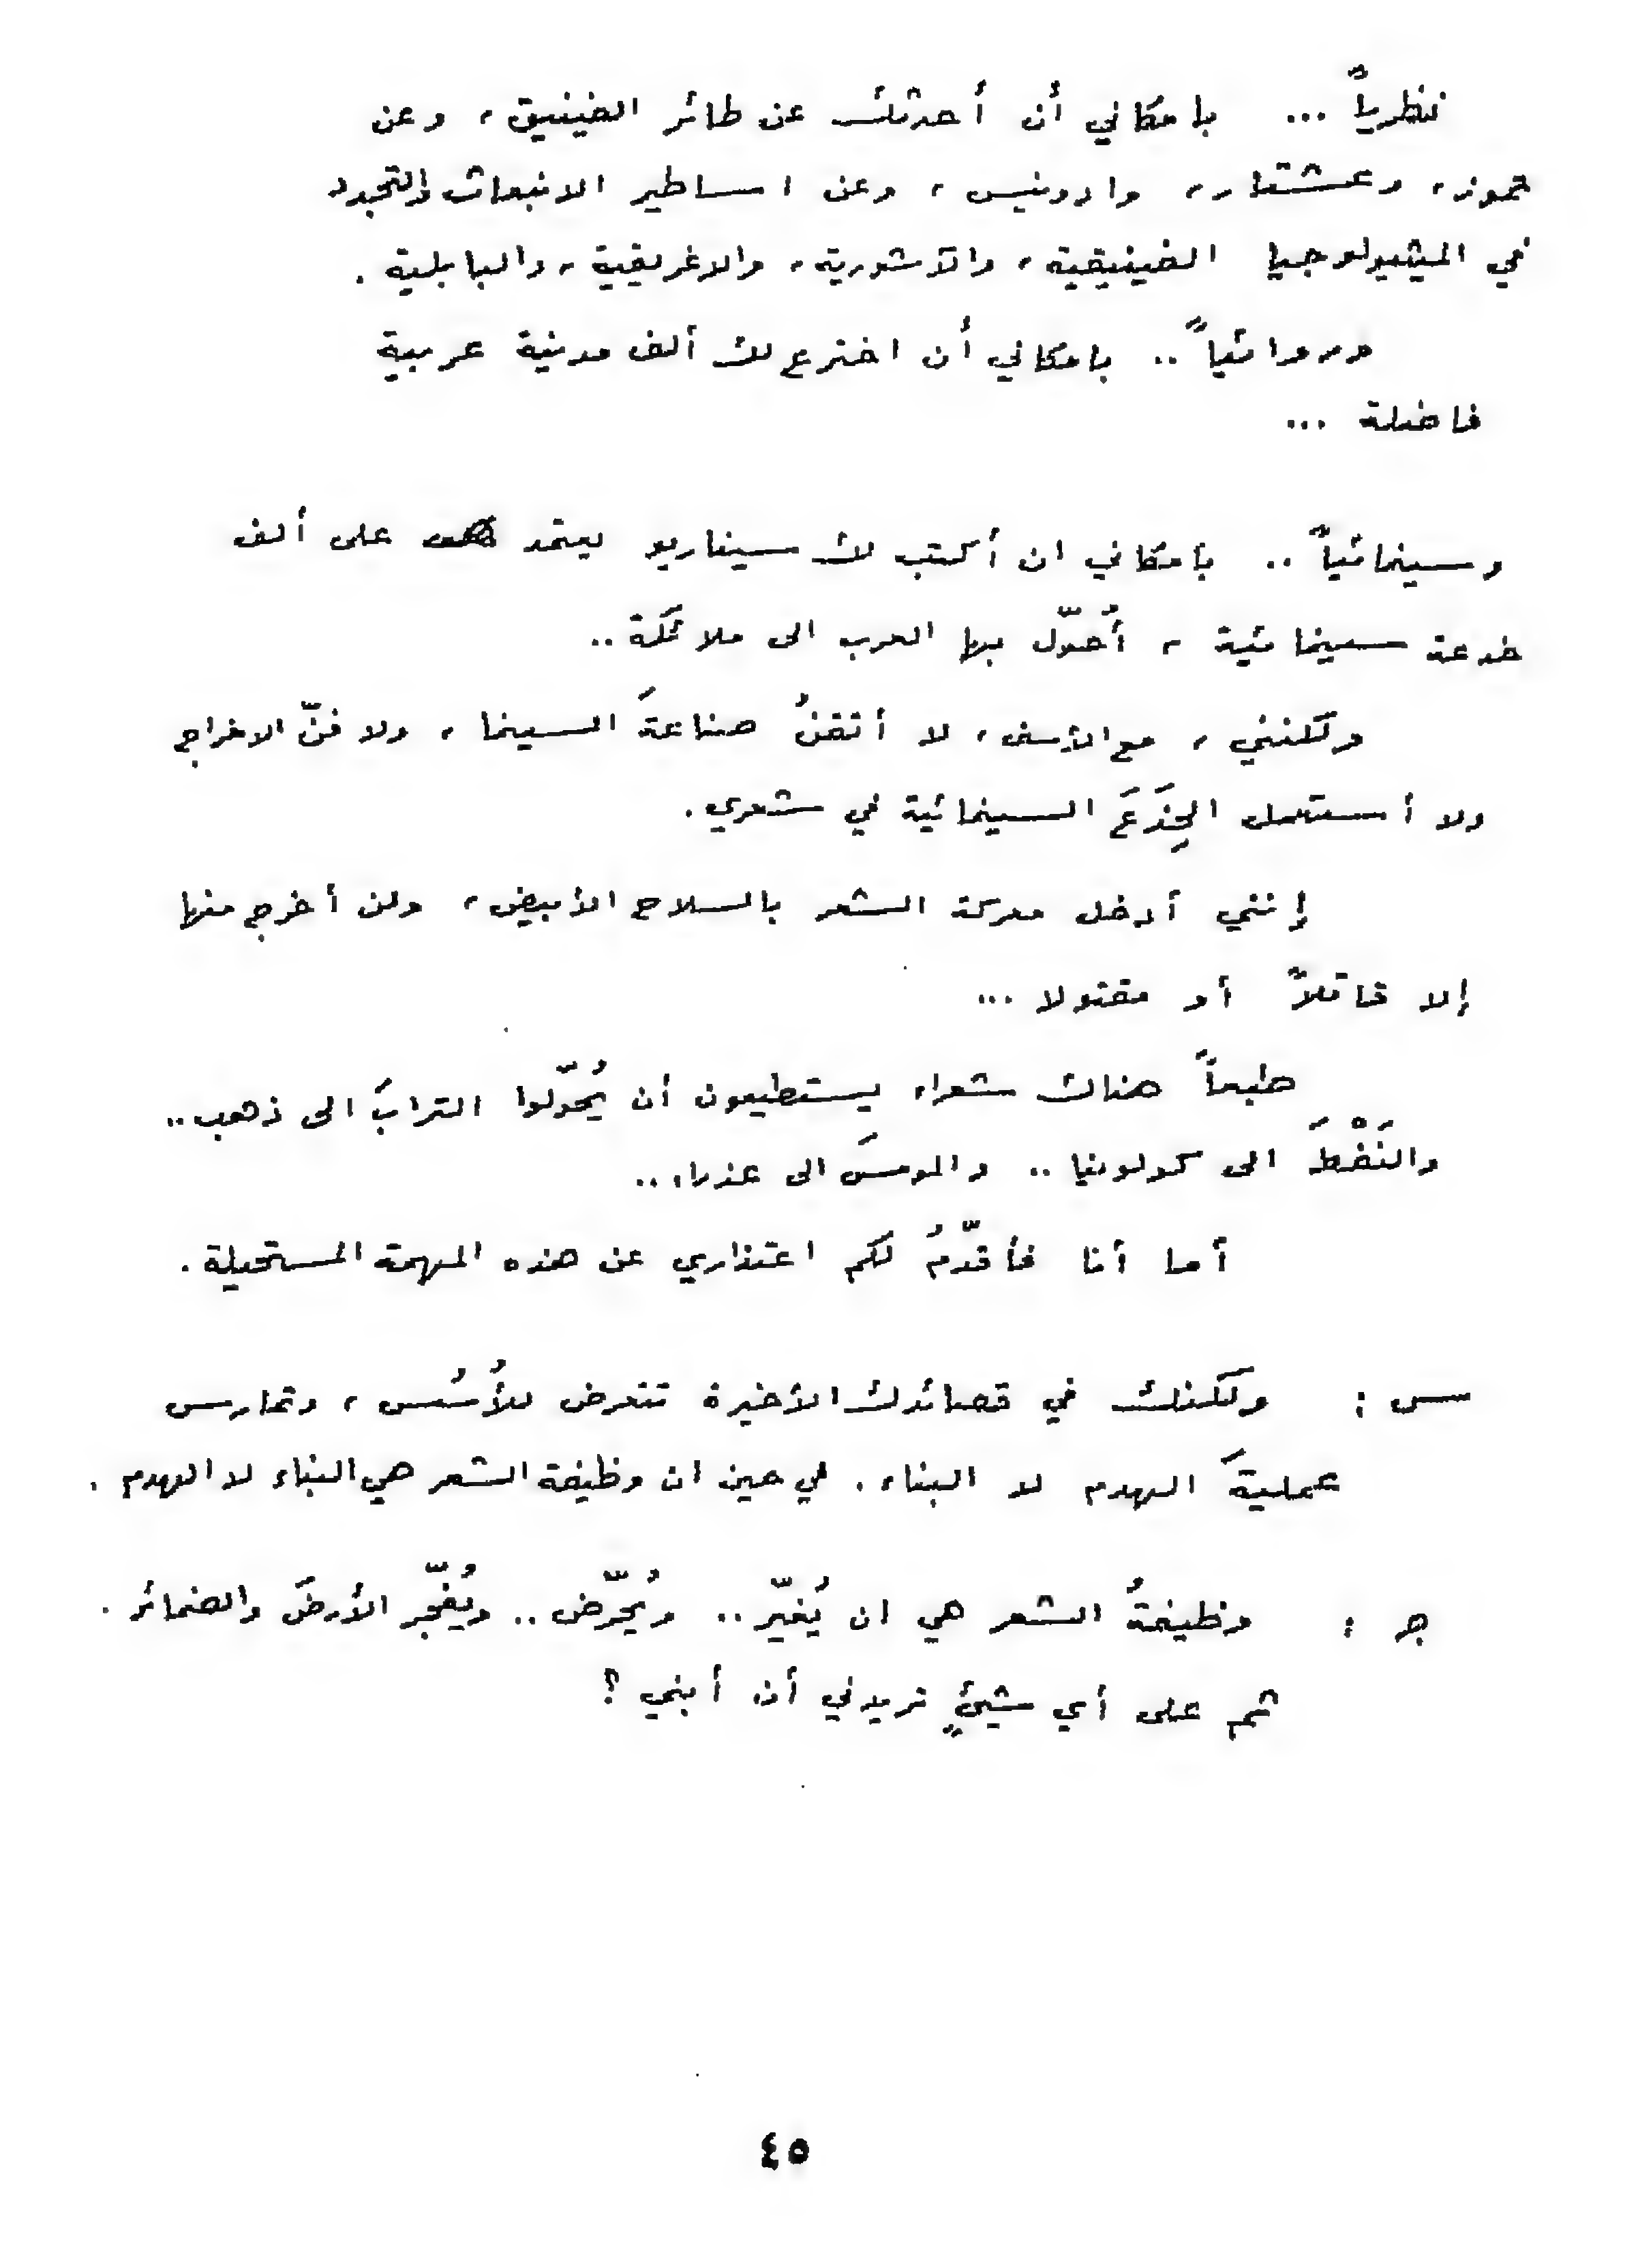 نظرياً ... بامكاني أن أحدثك عن طائر الفينيق ، وعن
تموز، وعشتار، وادونيس ، وعن اساطير الانبعاث والتجدد
في الميثيولوجيا الفينيقية ، والآشورية ، والاغريقية ، والبابلية .
وروائياً .. بامكاني أن اخترع لك ألف مدينة عربية
فاضلة ...
وسينمائياً .. بامكاني ان أكتب لك سيناريو يعتمد على ألف
خدعة سينمائية ، أُحوّل بها العرب الى ملائكة ..
ولكنني ، مع الأسف ، لا أتقنُ صناعةَ السينما ، ولا فنّ الاخراج
ولا أستعمل الخِدَعَ السينمائية في شعري .
إنني أدخل معركة الشعر بالسلاح الأبيض ، ولن أخرج منها
إلا قاتلاً أو مقتولا ...
طبعاً هناك شعراء يستطيعون أن يُحوّلوا الترابَ الى ذهب ..
والنَفْطَ الى كولونيا .. والمومسَ الى عذراء ..
أما أنا فأقدّمُ لكم اعتذاري عن هذه المهمة المستحيلة .
س : ولكنك في قصائدك الأخيرة تتعرض للأُسُس ، وتمارس
عمليةَ الهدم لا البناء . في حين ان وظيفة الشعر هي البناء لا الهدم .
ج : وظيفةُ الشعر هي ان يُغيّر .. ويُحرّض .. ويُفجّر الأرضَ والضمائر .
ثم على أي شيئٍ تريدني أن أبني ؟
٤٥